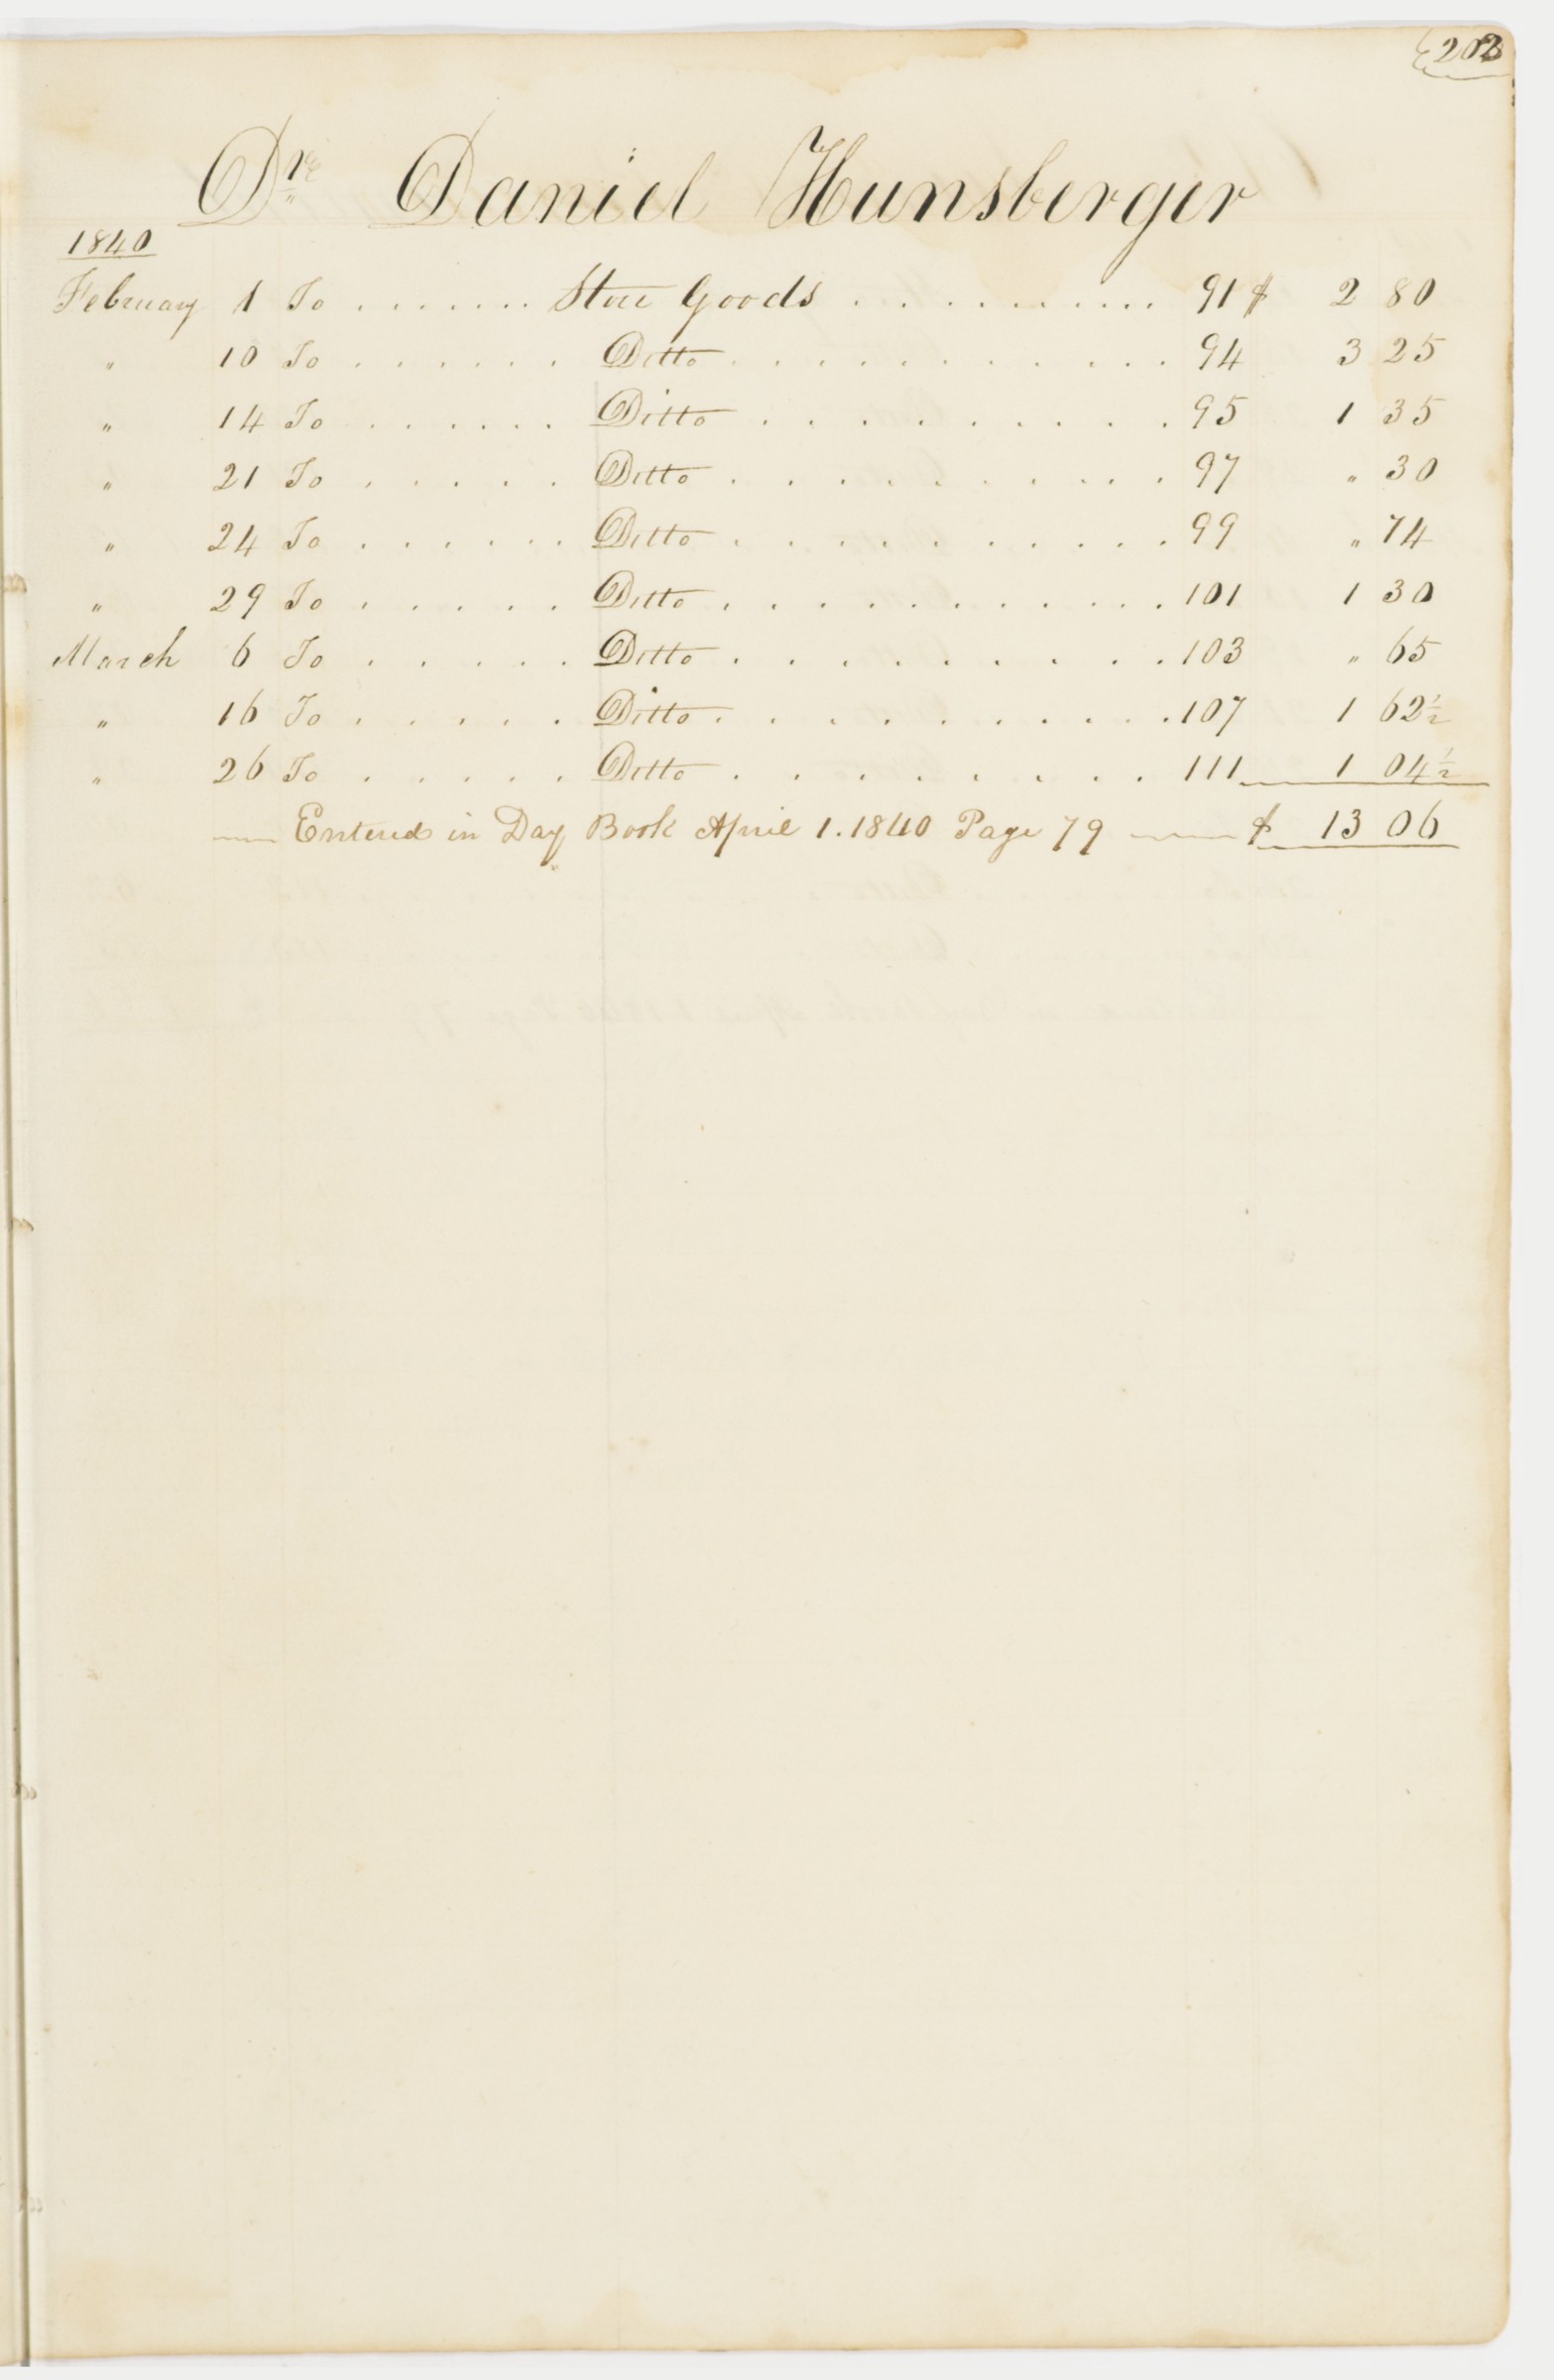 202
Dr. Daniel Hunsberger
1840
February 1 To ....... Store Goods .......... 91 $ 2 80
" 10 To ...... Ditto .......... 94 3 25
" 14 To ...... Ditto ......... 95 1 35
" 21 To ..... Ditto ......... 97 " 30
" 24 To ...... Ditto ......... 99 " 74
" 29 To ..... Ditto .......... 101 1 30
March 6 To ..... Ditto ......... 103 " 65
" 16 To ..... Ditto ......... 107 1 62½
" 26 To ..... Ditto ........ 111 1 04½
Entered in Day Book April 1. 1840 Page 79 $ 13 06